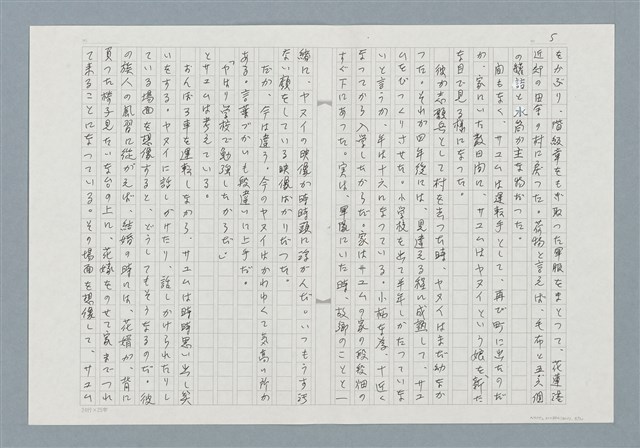 5
をかぶり、階級章をもぎ取った軍服をまとって、花蓮港
近郊の田舎の村に戻った。荷物と言えば、毛布と五、六個
の罐詰と水筒が主な物だった。
間もなく、サユムは運転手として、再び町に出たのだ
が、家にいた数日間に、サユムはヤヌイという娘を新た
な目で見る様になった。
彼が志願兵として村を去った時、ヤヌイはまだ幼なか
った。それが四年後には、見違える程に成熟して、サユ
ムをびっくりさせた。小学校を出て半年しかたっていな
いと言うが、年は十六になっている。小柄な体、十近く
なってから入学したからだ。家はサユムの家の段段畑の
すぐ下にあった。実は、軍隊にいた時、故郷のことと一
緒に、ヤヌイの映像が時時頭に浮かんだ。いつもうす汚
ない顔をしている映像ばかりだった。
だが、今は違う。今のヤヌイはかわゆくて気高い所が
ある。言葉づかいも段違いに上手だ。
「やはり学校で勉強したからだ」
とサユムは考えている。
おんぼろ車を運転しながら、サユムは時時思い出し笑
いをする。ヤヌイに話しかけたり、話しかけられたりし
ている場面を想像すると、どうしてもそうなるのだ。彼
の族人の風習に従がえば、結婚の時には、花婿が、背に
負った椅子見たいな台の上に、花嫁をのせて家までつれ
て来ることになっている。その場面を想像して、サユム